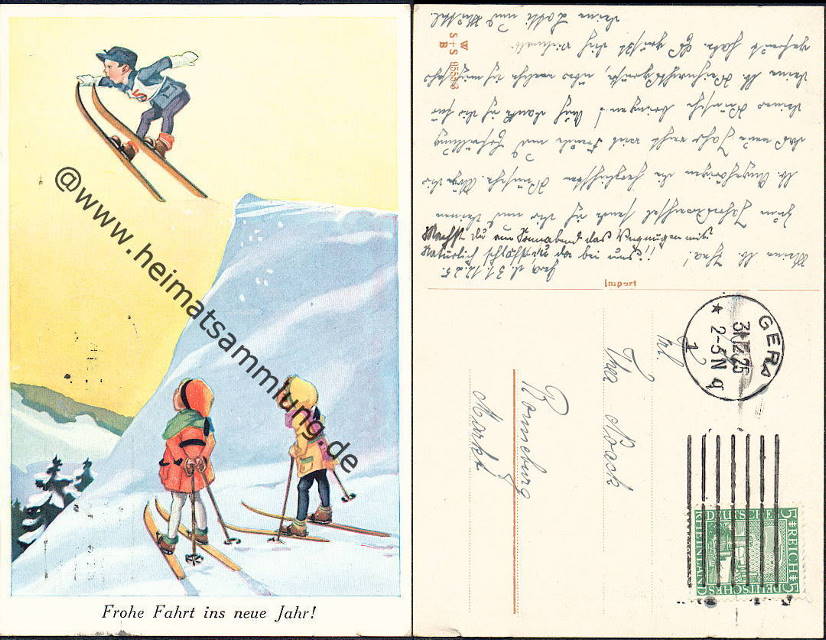 @www.heimatsammlung.de
Frohe Fahrt ins neue Jahr!
Gera d. 31.12.25.
Meine lb. Ina!
Zum Jahreswechsel sende ich dir und Deinen
lb. Angehörigen die herzlichsten Wünsche. Möge dir
das neue Jahr recht viel Freude und Erfüllung
deiner Wünsche bringen! Auch danke ich dir für
deine lb. Weihnachtsgrüße, über welche ich mich sehr
gefreut habe. Es grüßt dich vielmals
deine Lotti und
Machst du am Sonnabend das Vergnügen mit
Natürlich schläfst du da bei uns!!
W
S+S
B
Import
GERA
31.12.25
2-5 N
* 1 q
Frl.
Ina Noack
Ronneburg
Markt
DEUTSCHES
5 * REICH * 5